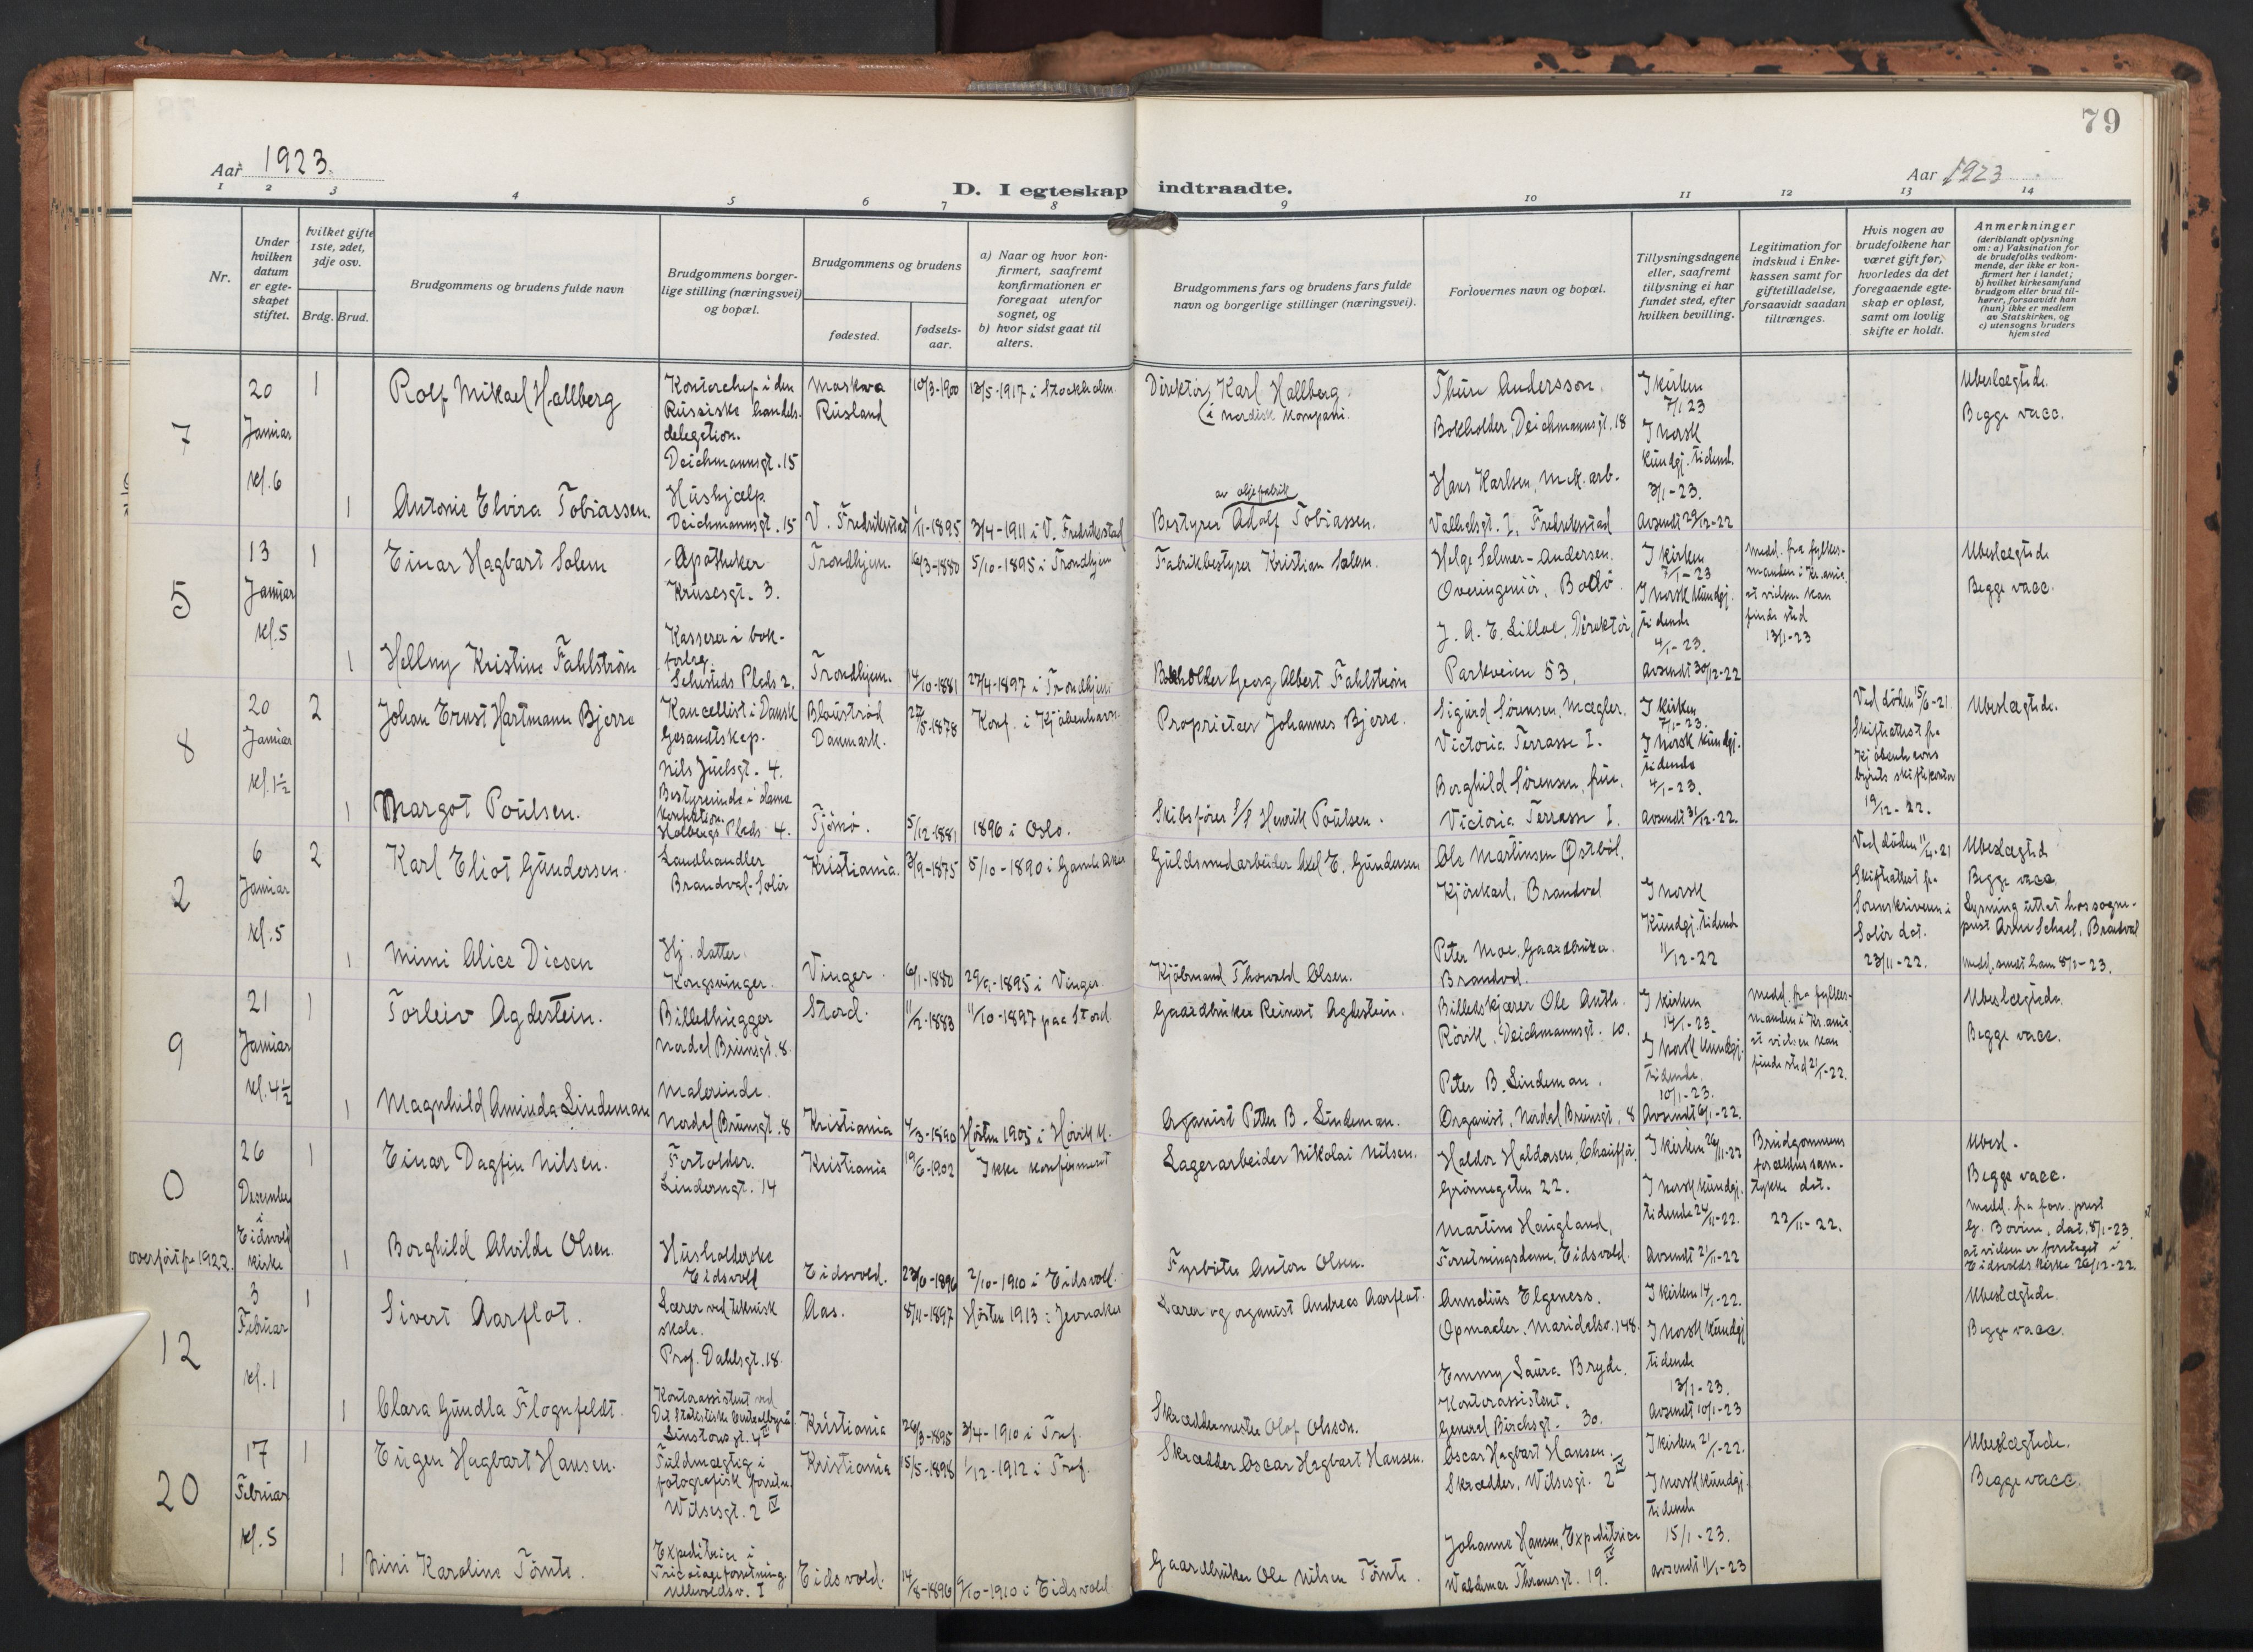 79
Aar 1923.
Aar 1923
D. I egteskap indtraadte.
1 2 3 4 5 6 7 8 9 10 11 12 13 14
Nr.
Under hvilken datum er egteskapet stiftet.
hvilket gifte 1ste, 2det, 3dje osv.
Brdg. Brud.
Brudgommens og brudens fulde navn
Brudgommens borgerlige stilling (næringsvei) og bopæl.
Brudgommens og brudens
fødested.
fødselsaar.
a) Naar og hvor konfirmert, saafremt konfirmationen er foregaat utenfor sognet, og
b) hvor sidst gaat til alters.
Brudgommens fars og brudens fars fulde navn og borgerlige stillinger (næringsvei).
Forlovernes navn og bopæl.
Tillysningsdagene eller, saafremt tillysning ei har fundet sted, efter hvilken bevilling.
Legitimation for indskud i Enkekassen samt for giftetilladelse, forsaavidt saadan tiltrænges.
Hvis nogen av brudefolkene har været gift før, hvorledes da det foregaaende egteskap er opløst, samt om lovlig skifte er holdt.
Anmerkninger
(deriblandt oplysning om: a) Vaksination for de brudefolks vedkommende, der ikke er konfirmert her i landet; b) hvilket kirkesamfund brudgom eller brud tilhører, forsaavidt han (hun) ikke er medlem av Statskirken, og c) utensogns bruders hjemsted
7
20 Januar kl. 6
1
Rolf Mikael Hallberg
Kontorchef i den Russiske handelsdelegation. Deichmannsgt. 15
Moskva Rusland
10/3-1900
12/5-1917 i Stockholm.
Direktör Karl Hallberg. i nordisk kompani.
Thure Andersson. Bokholder, Deichmannsgt. 18
I kirken 7/1 23 I norsk kundgj. tidend. 3/1-23. Avsendt 29/12-22
Ubeslægtede. Begge vacc.
1
Antonie Elvira Tobiassen.
Hushjælp. Deichmannsgt. 15
V. Fredrikstad
1/11-1895
3/4-1911 i V. Fredrikstad
Bestyrer av oljefabrik Adolf Tobiassen.
Hans Karlsen, mek. arb. Valhalsgt. I, Fredrikstad
5
13 Januar kl. 5
1
Einar Hagbart Solem
Apotheker Krusesgt. 3.
Trondhjem.
16/3-1880
5/10-1895 i Trondhjem
Fabrikbestyrer Kristian Solem.
Helge Selmer-Andersen. Overingeniör, Bodö.
I kirken 7/1-23 I norsk kundgj. tidende 4/1-23. Avsendt 30/12-22
medd. fra fylkesmanden i Kr.ania at vielsen kan finde sted 13/1-23
Ubeslægtede Begge vacc.
1
Hellny Kristine Fahlström
Kasserer i bokforlag. Schusteds Plads 2.
Trondhjem.
14/10-1881
27/4-1897 i Trondhjem
Bokholder Georg Albert Fahlström
J. A. E. Lilloe, Direktör, Parkveien 53.
8
20 Januar kl. 1½
2
Johan Ernst Hartmann Bjerre
Kancellist i Dansk Gesandtskap. Nils Juelsgt. 4.
Blauströd Danmark.
27/5-1878
Konf. i Kjöbenhavn.
Proprietær Johannes Bjerre.
Sigurd Sörensen, mægler. Victoria Terrasse I.
I kirken 7/1-23. I norsk kundgj. tidende 4/1-23. avsendt 31/12-22.
Ved döden 15/6-21 Skifteattest fra Kjöbenhavns byrets skiftekontor 19/12-22.
Ubeslægtede.
1
Margot Poulsen.
Bestyrerinde i damekonfektion. Holbergs Plads 4.
Tjömö.
5/12-1881
1896 i Oslo.
Skibsförer S/S Henrik Poulsen.
Borghild Sörensen, frue. Victoria Terrasse I.
2
6 Januar kl. 5
2
Karl Eliot Gundersen.
Landhandler Brandval-Solör
Kristiania.
3/9-1875
5/10-1890 i Gamle Aker
Guldsmedarbeider Axel E. Gundersen
Ole Martinsen Östböl. Kjörekarl, Brandval
I norsk Kundgj. tidend 11/12-22
Ved döden 11/4-21 Skifteattest fra Sorenskriveren i Solör dat. 23/11-22.
Ubeslægted Begge vacc. Lysning uttat hos sogneprest Arne Scheel, Brandval medd. sendt ham 8/1-23.
1
Mimi Alice Diesen
Hj. datter. Kongsvinger.
Vinger.
6/1-1880
29/9-1895 i Vinger.
Kjöbmand Thorvald Olsen.
Peter Moe, Gaardbruker. Brandval.
9
21 Januar kl. 4½
1
Torleiv Agdestein.
Billedhugger Nordal Brunsgt. 8.
Stord.
11/2-1883
11/10-1897 paa Stord
Gaardbruker Reinert Agdestein.
Billedskjærer Ole Anth. Rövik, Deichmannsgt. 10.
I kirken 14/1-23. I norsk kundgj. tidende. 10/1-23. Avsendt 6/1-22.
medd. fra fylkesmanden i Kr.ania at vielsen kan finde sted 21/1-22.
Ubeslægtede. Begge vacc.
1
Magnhild Aminda Lindeman
Malerinde. Nordal Brunsgt. 8
Kristiania
4/3-1890
Hösten 1905 i Hövik K.
Organist Peter B. Lindeman.
Peter B. Lindeman. Organist, Nordal Brunsgt. 8
0
26 Desember i Eidsvold kirke
overfört fra 1922.
1
Einar Dagfin Nilsen.
Fortolder. Linderngt. 14
Kristiania
19/6-1902
Ikke konfirmert
Lagerarbeider Nikolai Nilsen.
Haldor Haldorsen, Chaufför, Grönnegaten 22.
I kirken 26/11-22 I norsk kundgj. tidende 24/11-22. Avsendt 21/11-22
Brudgommens forældres samtykke dat. 22/11-22.
Ubesl. Begge vacc. Medd. fra forr. prest G. Bovim, dat. 8/1-23. at vielsen er foretaget i Eidsvolds kirke 26/12-22.
1
Borghild Alvilde Olsen.
Husholderske Eidsvold
Eidsvold.
23/6-1896
2/10-1910 i Eidsvold.
Fyrböter Anton Olsen.
Martine Haugland, Forretningsdame, Eidsvold.
12
3 Februar kl. 1
1
Sivert Aarflot.
Lærer ved teknisk skole. Prof. Dahlsgt. 18.
Aas.
8/11-1897
Hösten 1913 i Jevnaker
Lærer og organist Andreas Aarflot.
Annolius Elgeness. Opmaaler. Maridalsv. 148.
I kirken 14/1-22. I norsk kundgj. tidende 13/1-23. Avsendt 10/1-23
Ubeslægtede. Begge vacc.
1
Clara Gundla Flognfeldt.
Kontorassistent ved Det Statistiske Centralbyrå. Sinstousgt. 4
Kristiania
26/3-1895
3/4-1910 i Tref.
Skræddermester Olof Olsson.
Emmy Laura Bryde. Kontorassistent. General Birchsgt. 30.
20
17 Februar kl. 5
1
Eugen Hagbart Hansen.
Fuldmægtig i fotografisk forretn. Wilsesgt. 2 IV
Kristiania
15/5-1898
1/12-1912 i Tref.
Skrædder Oscar Hagbart Hansen.
Oscar Hagbart Hansen. Skrædder, Wilsesgt. 2 IV
I kirken 21/1-22. I norsk kundgj. tidende 15/1-23. avsendt 11/1-23
Ubeslægtede. Begge vacc.
1
Nini Karoline Tömte.
Expeditrice i Tricotageforretning. Ullevoldsv. I
Eidsvold.
14/8-1896
9/10-1910 i Eidsvold
Gaardbruker Ole Nilsen Tömte.
Johanne Hansen, Expeditrice Waldemar Thranesgt. 19. IV